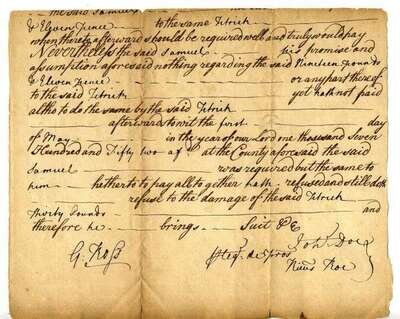 the said Samuel
& Eleven Pence to the same Titrich
when thereto afterward should be required well and truly would pay
Nevertheless the said Samuel his promise and
assumption aforesaid nothing regarding the said Nineteen Pounds
& Eleven Pence or any part thereof
to the said Titrich yet hath not paid
altho to do the same by the said Titrich
afterwards to wit the first day
of May in the year of our Lord one thousand Seven
Hundred and Fifty two at the County aforesaid the said
Samuel was required but the same to
him hetherto to pay all to gether hath refused and still doth
refuse to the damage of the said Titrich
thirty Pounds and
therefore he brings Suit &c
G. Ross Pleg. de Pros John Doe
Richd Roe